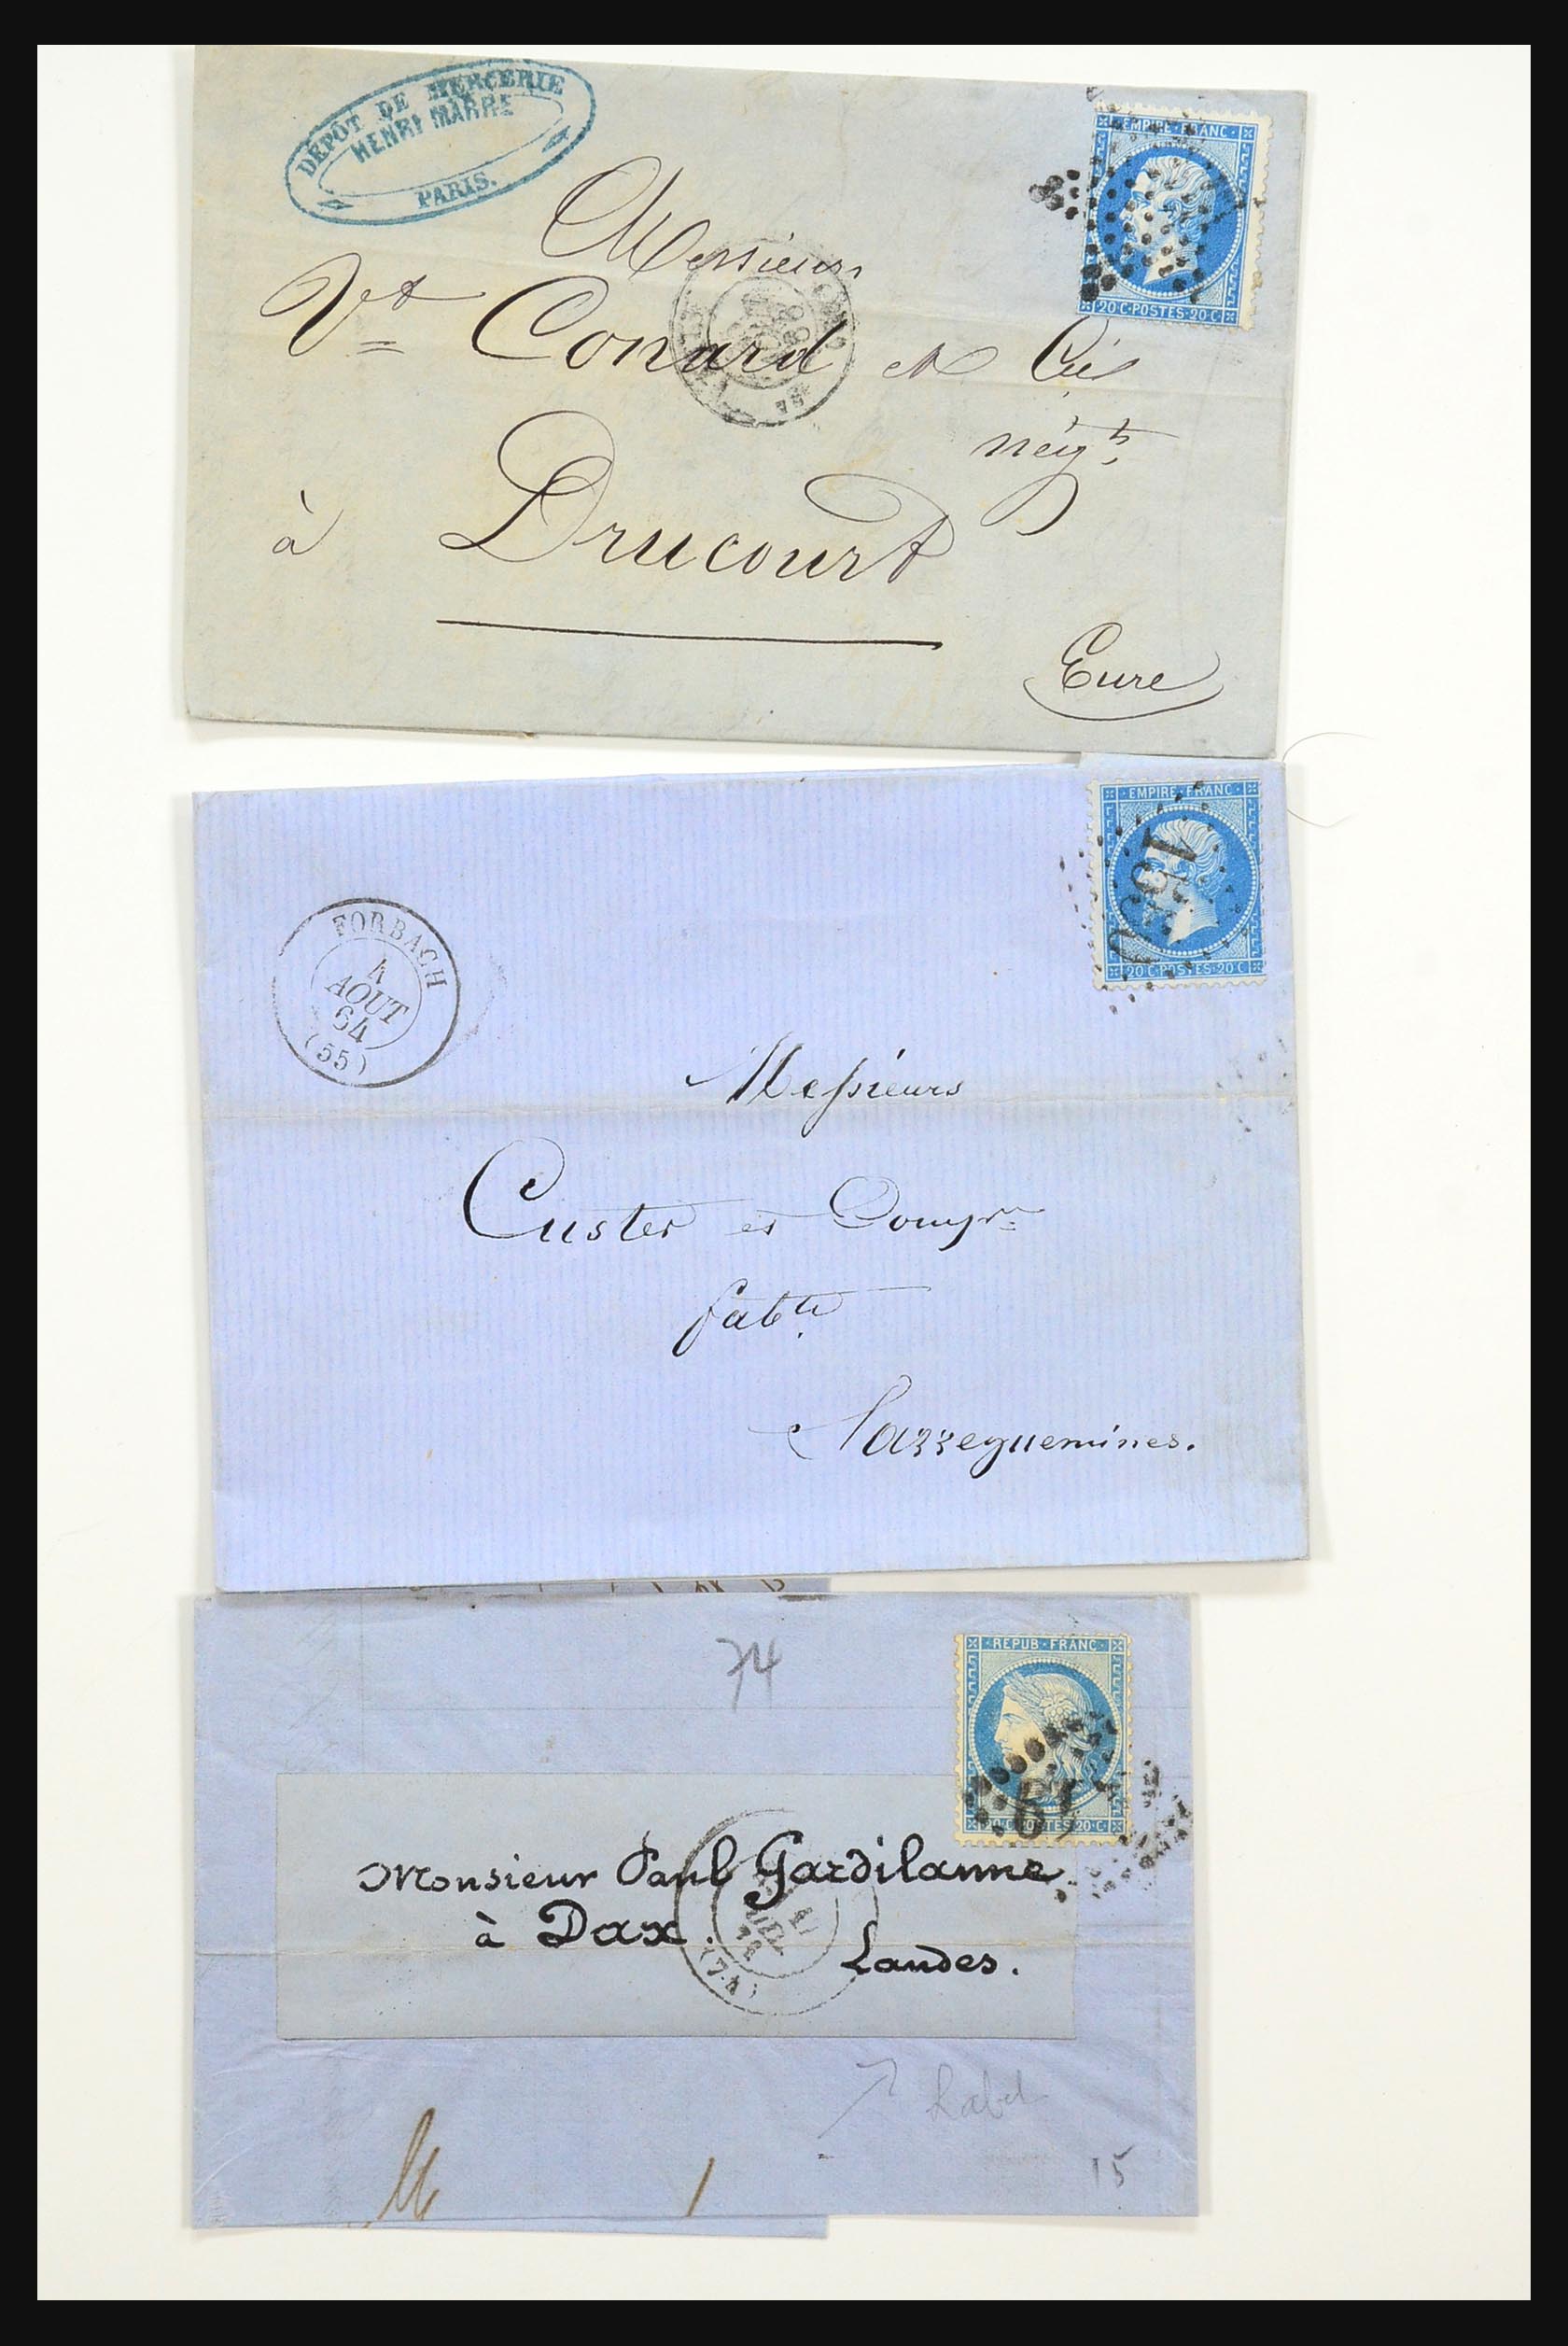 DÉPÔT DE MERCERIE
HENRI MARRE
PARIS.
EMPIRE FRANC
20 C POSTES 20 C
Messieurs
Ve Conard et Cie
négts
à Drucourt
Eure
EMPIRE FRANC
20 C POSTES 20 C
FORBACH
4
AOUT
64
(55)
Messieurs
Custer et
fabts
Sarreguemines.
74
REPUB FRANC
20 C POSTES 20 C
Monsieur Paul Gardilanne
à Dax.
Landes.
(74)
Label
15